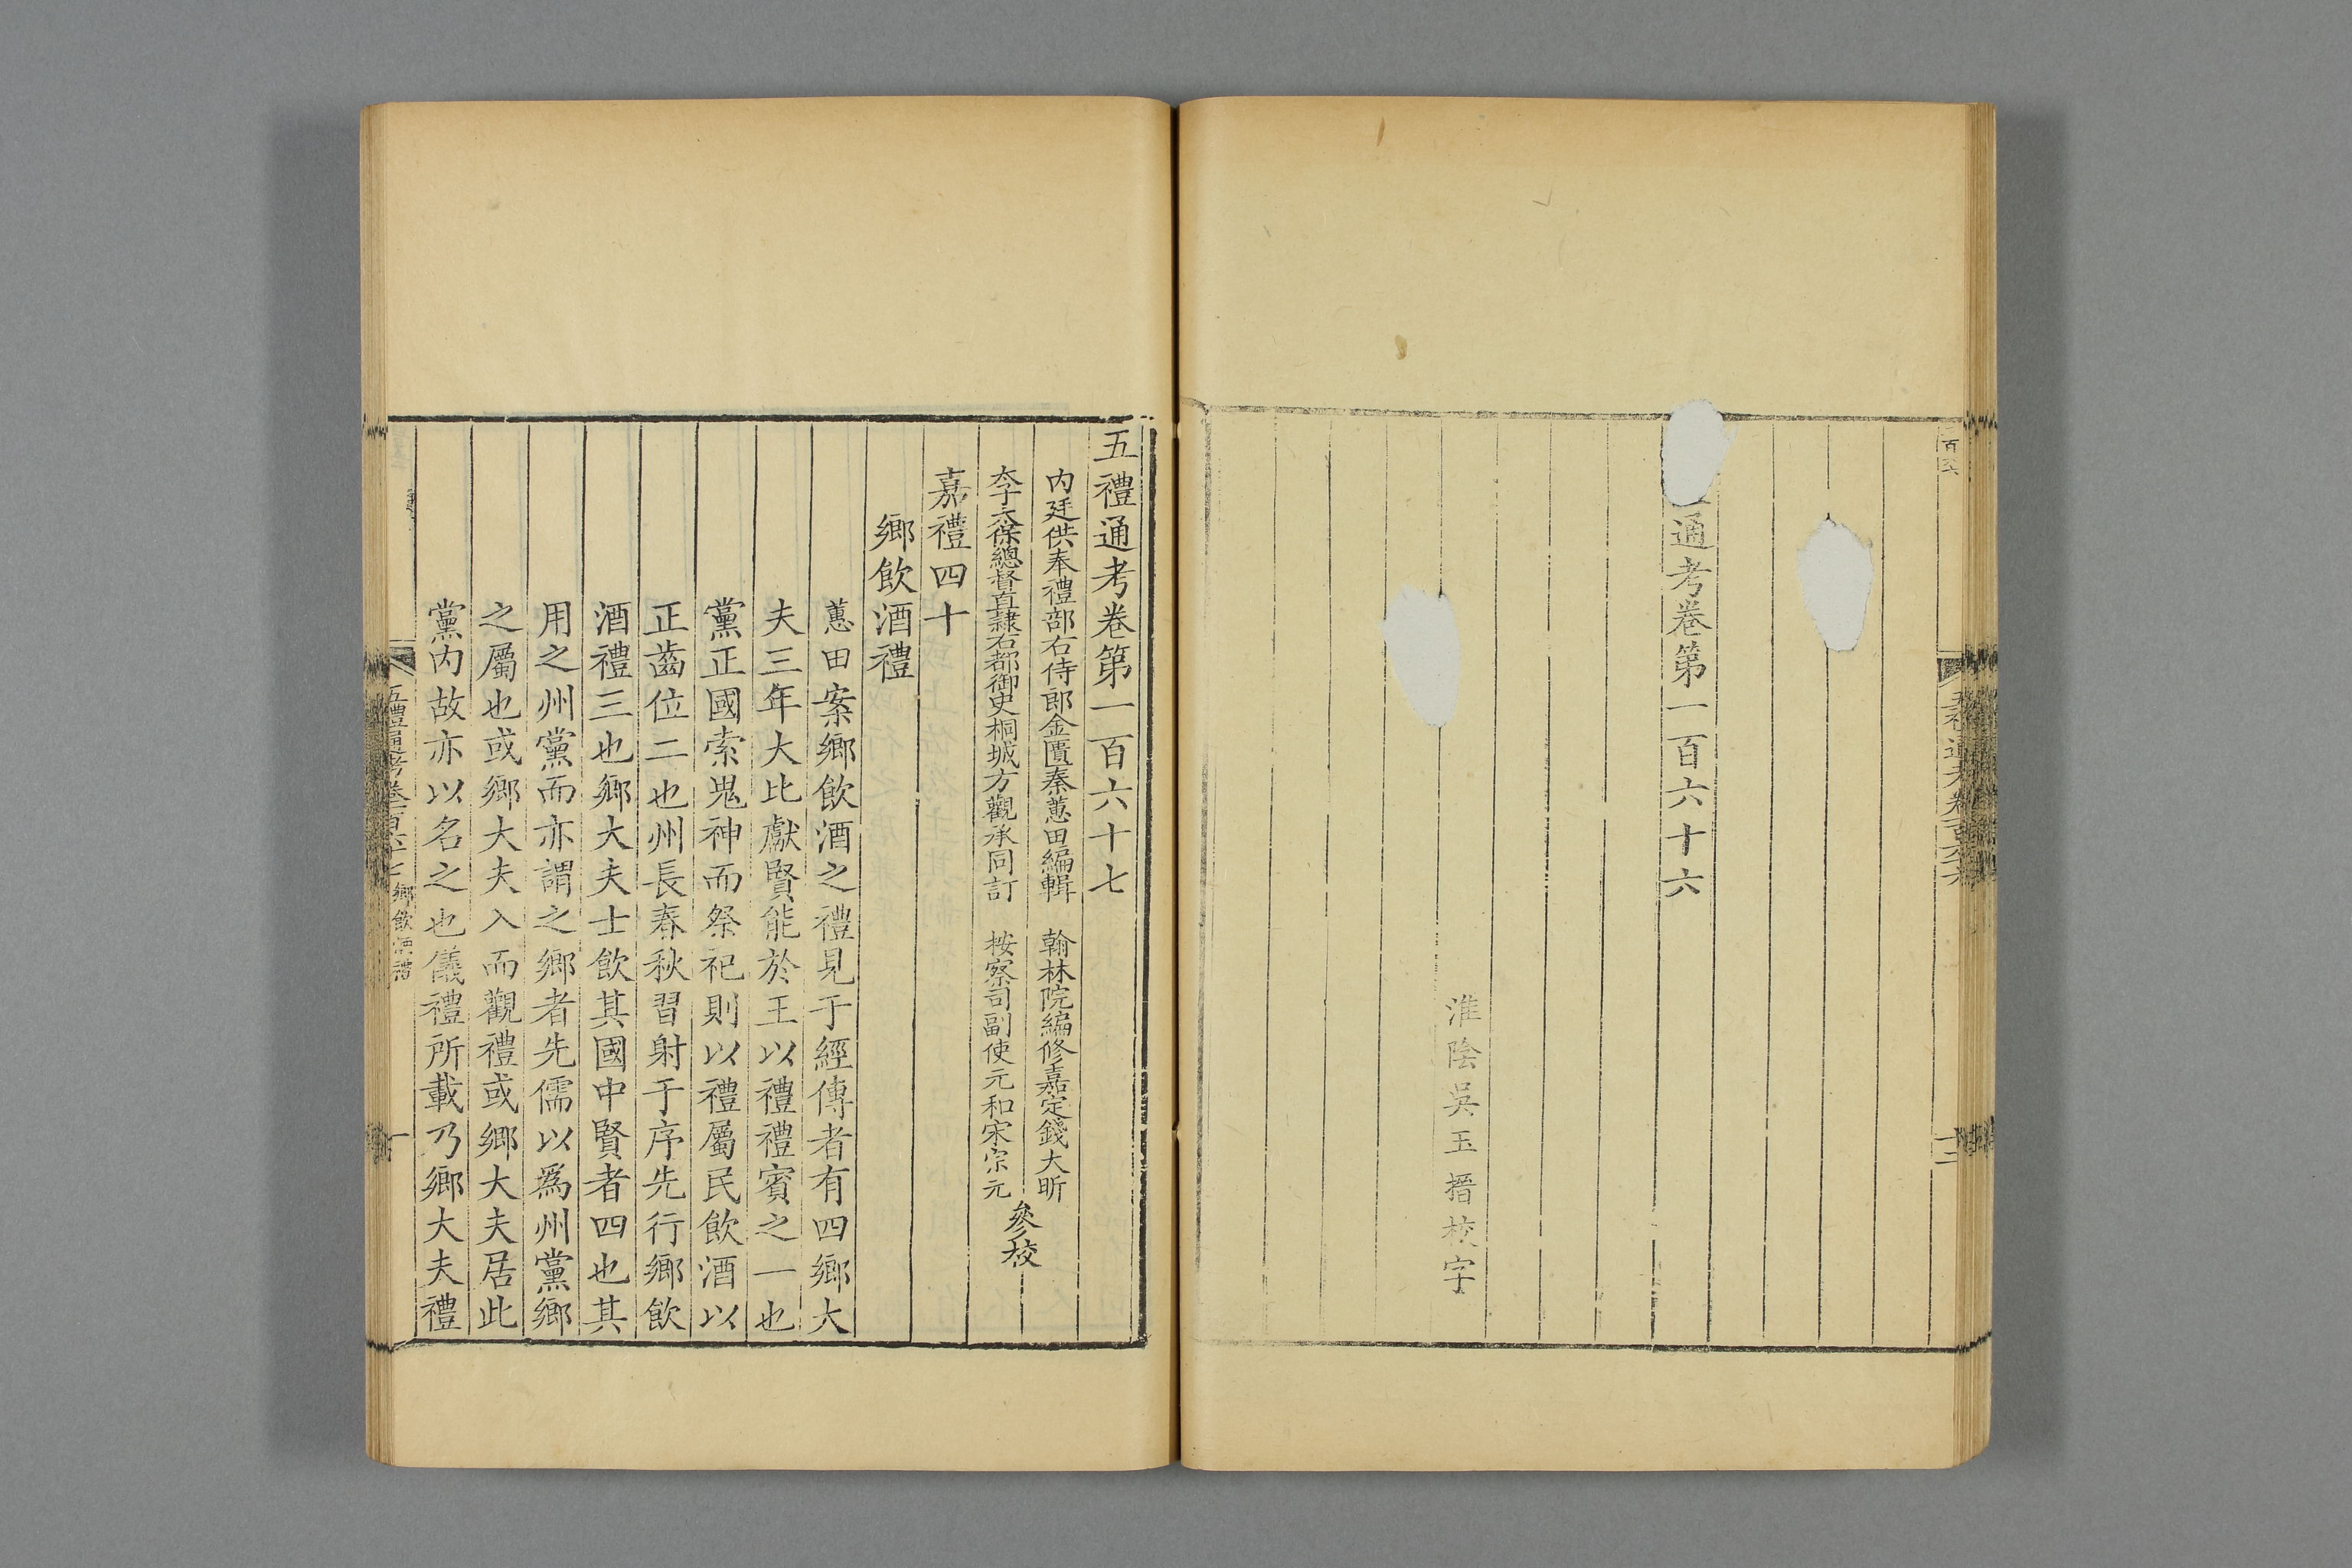 通考卷第一百六十六
淮陰吳玉搢校字
五禮通考卷第一百六十七
內廷供奉禮部右侍郎金匱秦蕙田編輯　翰林院編修嘉定錢大昕
太子太保總督直隸右都御史桐城方觀承同訂　按察司副使元和宋宗元
參校
嘉禮四十
鄉飲酒禮
蕙田案鄉飲酒之禮見于經傳者有四鄉大
夫三年大比獻賢能於王以禮禮賓之一也
黨正國索鬼神而祭祀則以禮屬民飲酒以
正齒位二也州長春秋習射于序先行鄉飲
酒禮三也鄉大夫士飲其國中賢者四也其
用之州黨而亦謂之鄉者先儒以爲州黨鄉
之屬也或鄉大夫入而觀禮或鄉大夫居此
黨內故亦以名之也儀禮所載乃鄉大夫禮
鄉飲酒禮
一